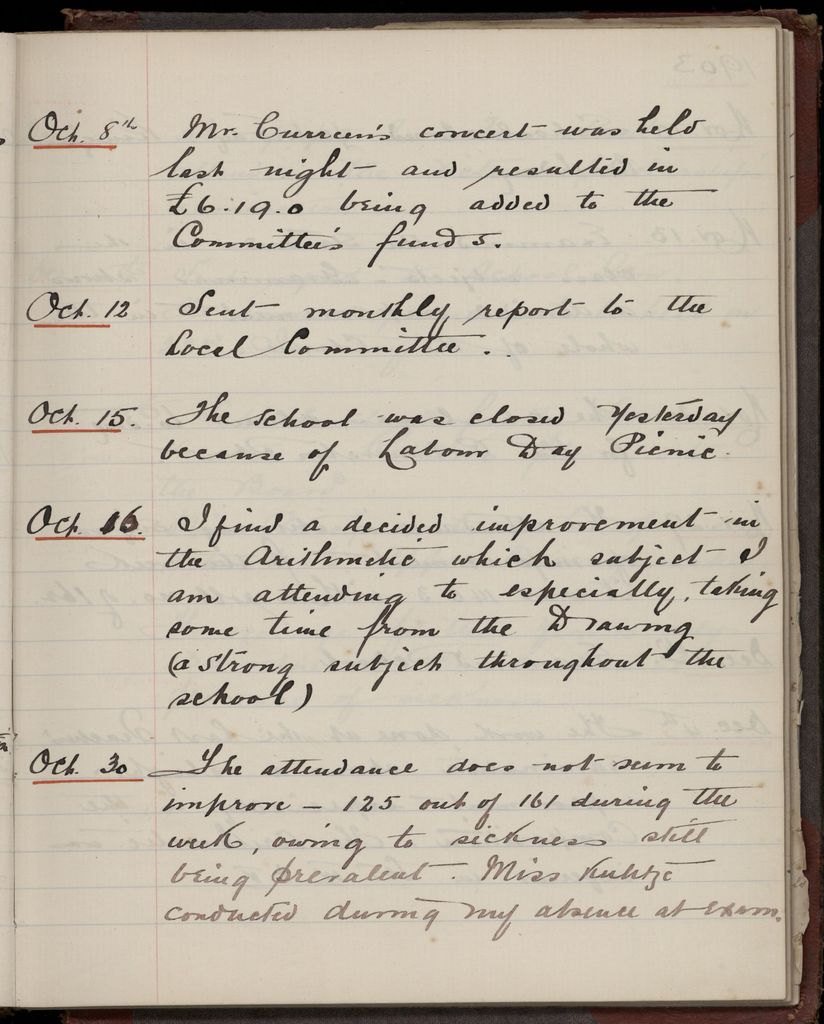 Oct. 8th Mr. Curreen's concert was held
last night and resulted in
£6.19.0 being added to the
Committee's funds.
Oct. 12 Sent monthly report to the
Local Committee.
Oct. 15. The school was closed yesterday
because of Labour Day Picnic.
Oct. 16. I find a decided improvement in
the Arithmetic which subject I
am attending to especially, taking
some time from the Drawing
(a strong subject throughout the
school)
Oct. 30 The attendance does not seem to
improve – 125 out of 161 during the
week, owing to sickness still
being prevalent. Miss
conducted during my absence at exam.